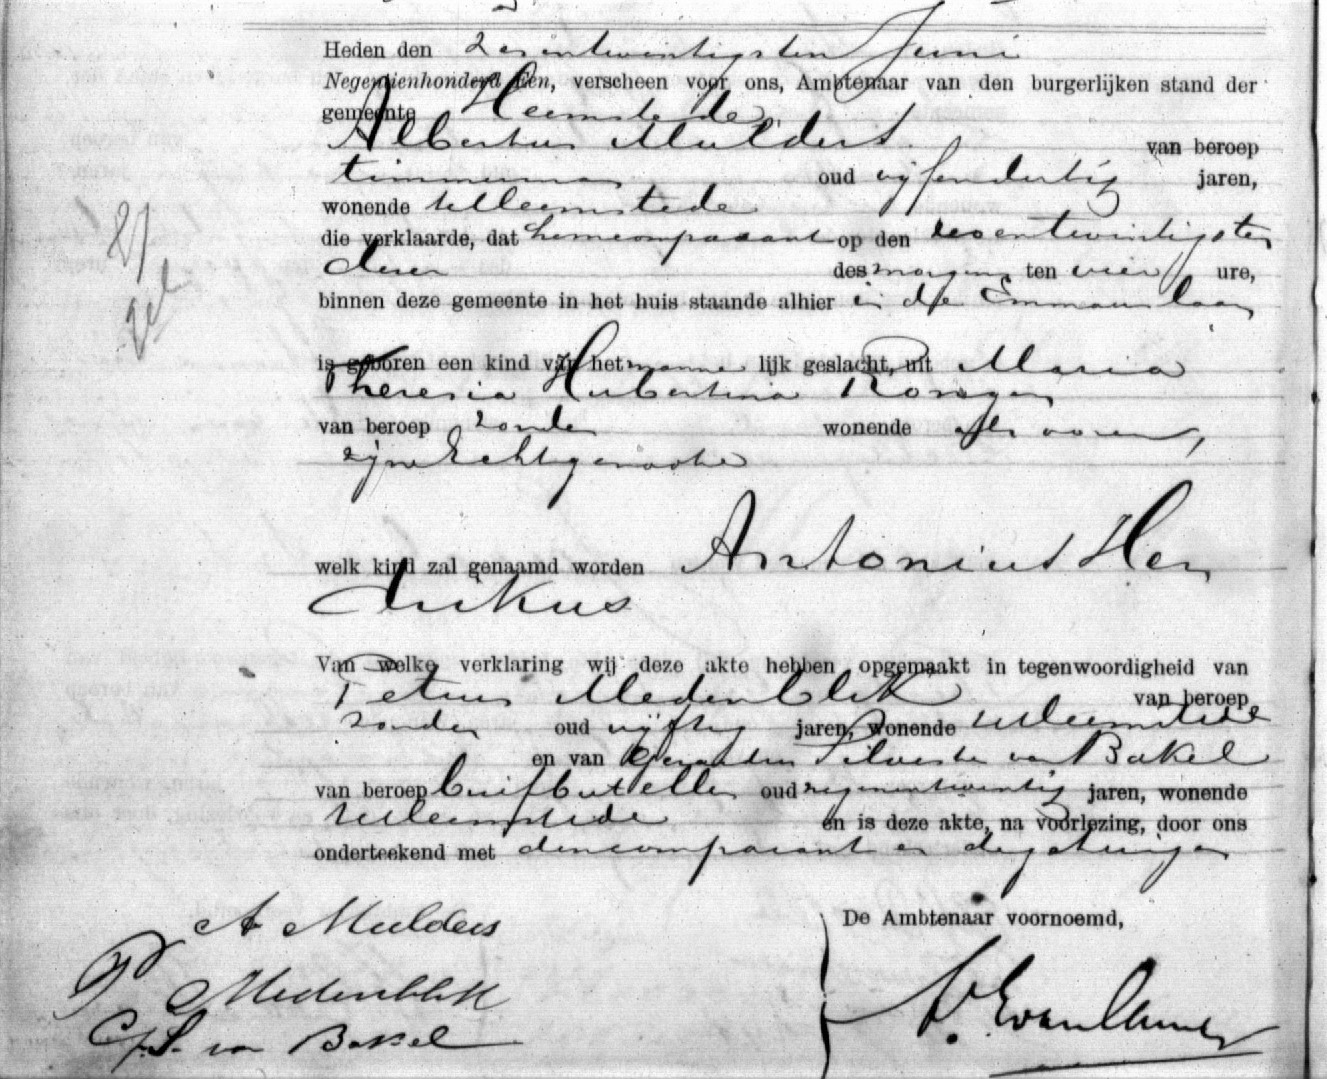 Heden den zesentwintigsten Juni
Negentienhonderd Een, verscheen voor ons, Ambtenaar van den burgerlijken stand der
gemeente Heemstede
Albertus Mulders van beroep
timmerman oud vijfendertig jaren,
wonende te Heemstede
die verklaarde, dat hem comparant op den zesentwintigsten
dezer des morgens ten vier ure,
binnen deze gemeente in het huis staande alhier in de Emmauslaan
is geboren een kind van het manne lijk geslacht, uit Maria
Theresia Hubertina
van beroep zonder wonende alvoren,
zijne Echtgenoote
welk kind zal genaamd worden Antonius Hen
drikus
Van welke verklaring wij deze akte hebben opgemaakt in tegenwoordigheid van
Petrus Medenblik van beroep
zonder oud vijftig jaren, wonende te Heemstede
en van Gerardus Silvester van Bakel
van beroep oud negenentwintig jaren, wonende
te Heemstede en is deze akte, na voorlezing, door ons
onderteekend met den comparant en de getuigen
De Ambtenaar voornoemd,
A Mulders
P Medenblik
G. S. van Bakel
187